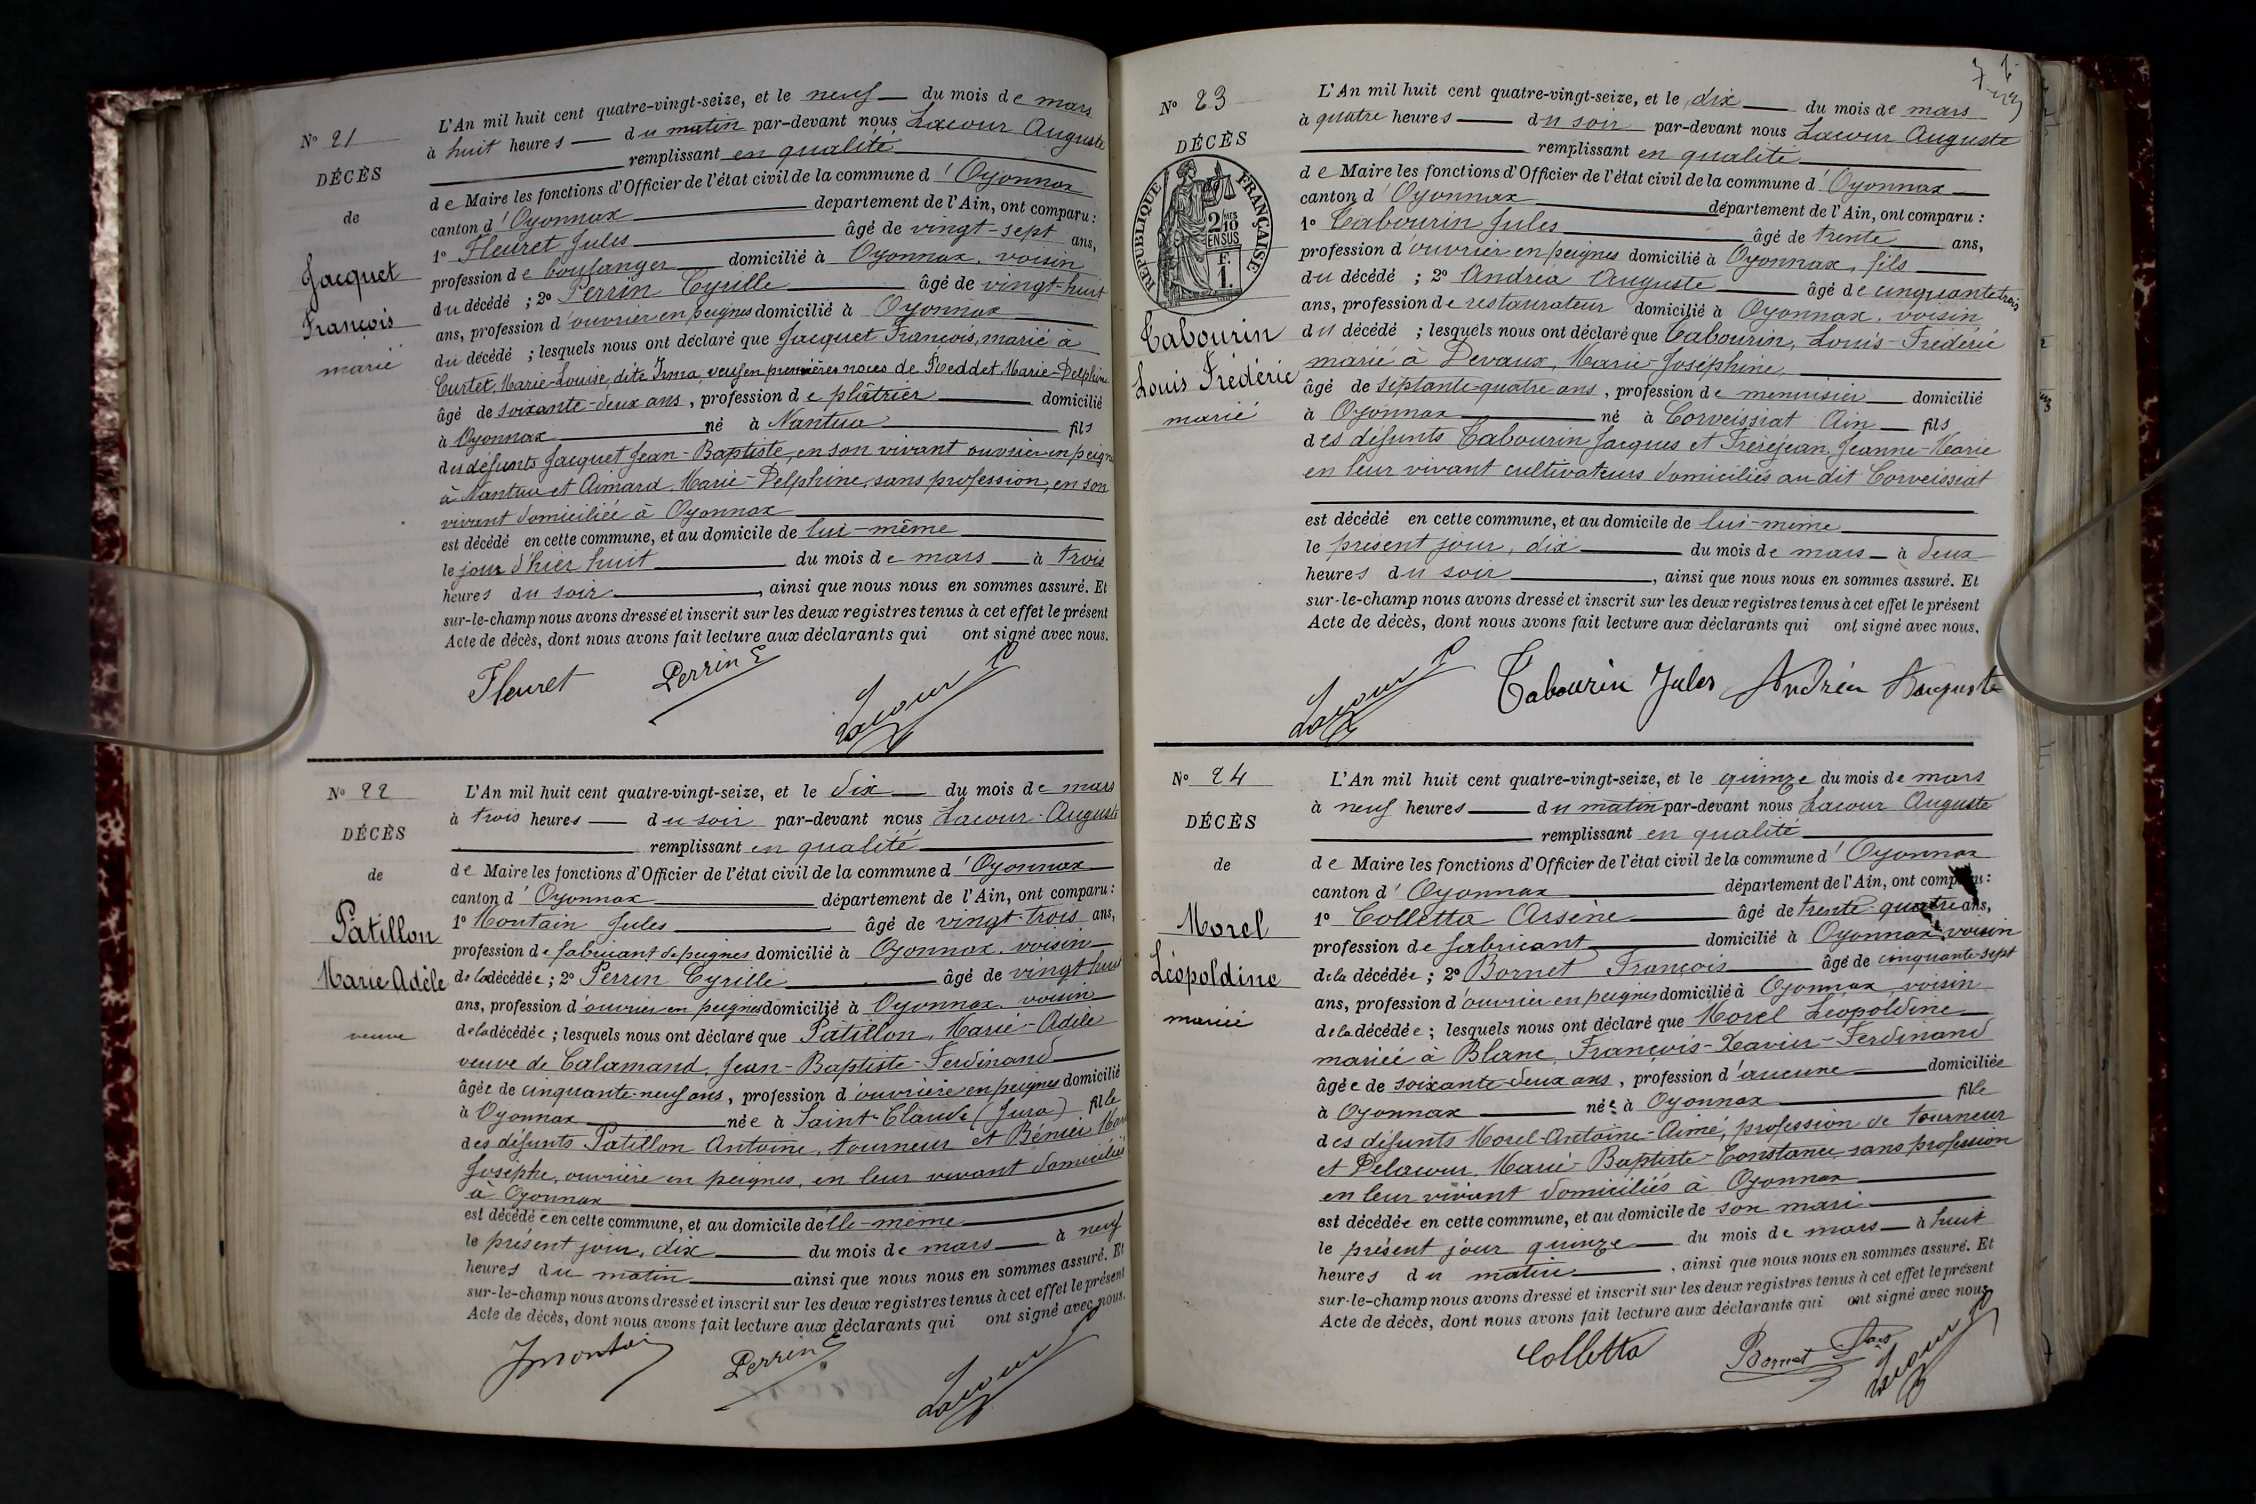 N° 21
DÉCÈS
de
Jacquet
François
marié
L'An mil huit cent quatre-vingt-seize, et le neuf du mois de mars
à huit heures du matin par-devant nous Lacour Auguste
remplissant en qualité
de Maire les fonctions d'Officier de l'état civil de la commune d'Oyonnax
canton d'Oyonnax département de l'Ain, ont comparu :
1° Fleuret Jules âgé de vingt-sept ans,
profession de boulanger domicilié à Oyonnax, voisin
du décédé ; 2° Perrin Cyrille âgé de vingt-huit
ans, profession d'ouvrier en peignes domicilié à Oyonnax
du décédé ; lesquels nous ont déclaré que Jacquet François, marié à
Curtet, Marie-Louise, dite Irma, veuf en premières noces de Reddet Marie-Delphine
âgé de soixante-deux ans, profession de plâtrier domicilié
à Oyonnax né à Nantua fils
des défunts Jacquet Jean-Baptiste, en son vivant ouvrier en peign
à Nantua et Aimard, Marie-Delphine, sans profession, en son
vivant domiciliée à Oyonnax
est décédé en cette commune, et au domicile de lui-même
le jour d'hier huit du mois de mars à trois
heures du soir, ainsi que nous nous en sommes assuré. Et
sur-le-champ nous avons dressé et inscrit sur les deux registres tenus à cet effet le présent
Acte de décès, dont nous avons fait lecture aux déclarants qui ont signé avec nous.
Fleuret Perrin C Lacour
N° 22
DÉCÈS
de
Patillon
Marie Adèle
veuve
L'An mil huit cent quatre-vingt-seize, et le dix du mois de mars
à trois heures du soir par-devant nous Lacour Auguste
remplissant en qualité
de Maire les fonctions d'Officier de l'état civil de la commune d'Oyonnax
canton d'Oyonnax département de l'Ain, ont comparu :
1° Montain Jules âgé de vingt trois ans,
profession de fabricant de peignes domicilié à Oyonnax, voisin
de la décédée ; 2° Perrin Cyrille âgé de vingt huit
ans, profession d'ouvrier en peignes domicilié à Oyonnax, voisin
de la décédée ; lesquels nous ont déclaré que Patillon, Marie-Adèle
veuve de Calamand, Jean-Baptiste-Ferdinand
âgée de cinquante-neuf ans, profession d'ouvrière en peignes domicilié
à Oyonnax née à Saint-Claude (Jura) fille
des défunts Patillon Antoine, tourneur et Bénier Mari
Josephte, ouvrière en peignes, en leur vivant domiciliés
à Oyonnax
est décédée en cette commune, et au domicile d'elle-même
le présent jour, dix du mois de mars à neuf
heures du matin ainsi que nous nous en sommes assuré. Et
sur-le-champ nous avons dressé et inscrit sur les deux registres tenus à cet effet le présent
Acte de décès, dont nous avons fait lecture aux déclarants qui ont signé avec nous.
Jmontain Perrin C Lacour
N° 23
DÉCÈS
RÉPUBLIQUE FRANÇAISE
2/10 MES
EN SUS
F.
1.
Tabourin
Louis Frédéric
marié
L'An mil huit cent quatre-vingt-seize, et le dix du mois de mars
à quatre heures du soir par-devant nous Lacour Auguste
remplissant en qualité
de Maire les fonctions d'Officier de l'état civil de la commune d'Oyonnax
canton d'Oyonnax département de l'Ain, ont comparu :
1° Tabourin Jules âgé de trente ans,
profession d'ouvrier en peignes domicilié à Oyonnax, fils
du décédé ; 2° Andréa Auguste âgé de cinquante trois
ans, profession de restaurateur domicilié à Oyonnax, voisin
du décédé ; lesquels nous ont déclaré que Tabourin, Louis-Frédéric
marié à Devaux, Marie-Joséphine,
âgé de septante-quatre ans, profession de menuisier domicilié
à Oyonnax né à Corveissiat Ain fils
des défunts Tabourin Jacques et Frèrejean Jeanne-Marie
en leur vivant cultivateurs domiciliés au dit Corveissiat
est décédé en cette commune, et au domicile de lui-même
le présent jour, dix du mois de mars à deux
heures du soir, ainsi que nous nous en sommes assuré. Et
sur-le-champ nous avons dressé et inscrit sur les deux registres tenus à cet effet le présent
Acte de décès, dont nous avons fait lecture aux déclarants qui ont signé avec nous.
Lacour Tabourin Jules Andréa Auguste
N° 24
DÉCÈS
de
Morel
Léopoldine
mariée
L'An mil huit cent quatre-vingt-seize, et le quinze du mois de mars
à neuf heures du matin par-devant nous Lacour Auguste
remplissant en qualité
de Maire les fonctions d'Officier de l'état civil de la commune d'Oyonnax
canton d'Oyonnax département de l'Ain, ont comparu :
1° Colletta Arsène âgé de trente-quatre ans,
profession de fabricant domicilié à Oyonnax, voisin
de la décédée ; 2° Bornet François âgé de cinquante-sept
ans, profession d'ouvrier en peignes domicilié à Oyonnax, voisin
de la décédée ; lesquels nous ont déclaré que Morel Léopoldine
mariée à Blanc, François-Xavier-Ferdinand
âgée de soixante-deux ans, profession d'aucune domiciliée
à Oyonnax née à Oyonnax fille
des défunts Morel-Antoine-Aimé, profession de tourneur
et Delacour, Marie-Baptiste-Constance sans profession
en leur vivant domiciliés à Oyonnax
est décédée en cette commune, et au domicile de son mari
le présent jour quinze du mois de mars à huit
heures du matin, ainsi que nous nous en sommes assuré. Et
sur-le-champ nous avons dressé et inscrit sur les deux registres tenus à cet effet le présent
Acte de décès, dont nous avons fait lecture aux déclarants qui ont signé avec nous.
Colletta Bornet Lacour